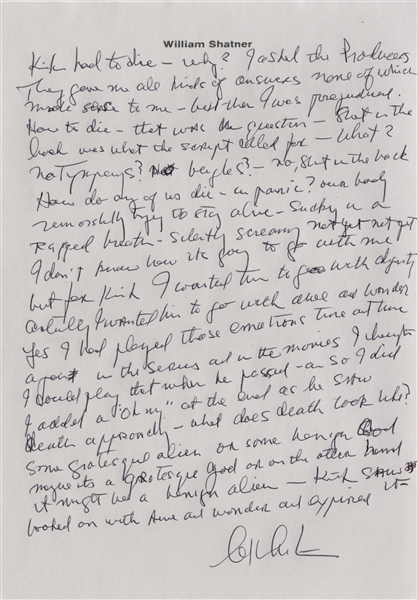 William Shatner
Kirk had to die – why? I asked the Producers
They gave me all kinds of answers none of which
made sense to me – but then I was prejudiced.
How to die – that was the question – Shot in the
back was what the script called for – What?
no Tympanys? Not bugles? – no, shot in the back
How do any of us die – in panic? our body
remorsefully trying to stay alive – Sucking in a
rasped breath – silently screaming not yet not yet
I don't know how its going to go with me
but for Kirk I wanted him to go with dignity
I wanted him to go with awe and wonder
Yes I had played those emotions time and time
again in the series and in the movies I thought
I could play that when he passed – an so I did
I added a "Oh my" at the end as he saw
death approach – what does death look like?
Some grotesque alien or some benign God
maybe its a grotesque God or on the other hand
it might be a benign alien – Kirk saw it
looked on with awe and wonder and expired